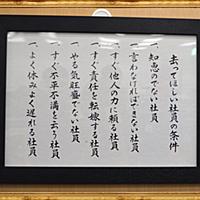 去ってほしい社員の条件
一、知恵のでない社員
一、言わなければできない社員
一、すぐ他人の力に頼る社員
一、すぐ責任を転嫁する社員
一、やる気旺盛でない社員
一、すぐ不平不満を云う社員
一、よく休みよく遅れる社員